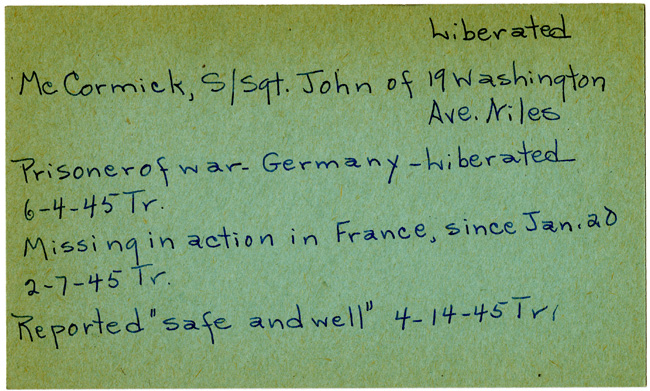 Liberated
McCormick, S/Sgt. John of 19 Washington
Ave. Niles
Prisoner of war - Germany - Liberated
6-4-45 Tr.
Missing in action in France, since Jan. 20
2-7-45 Tr.
Reported "safe and well" 4-14-45 Tr.